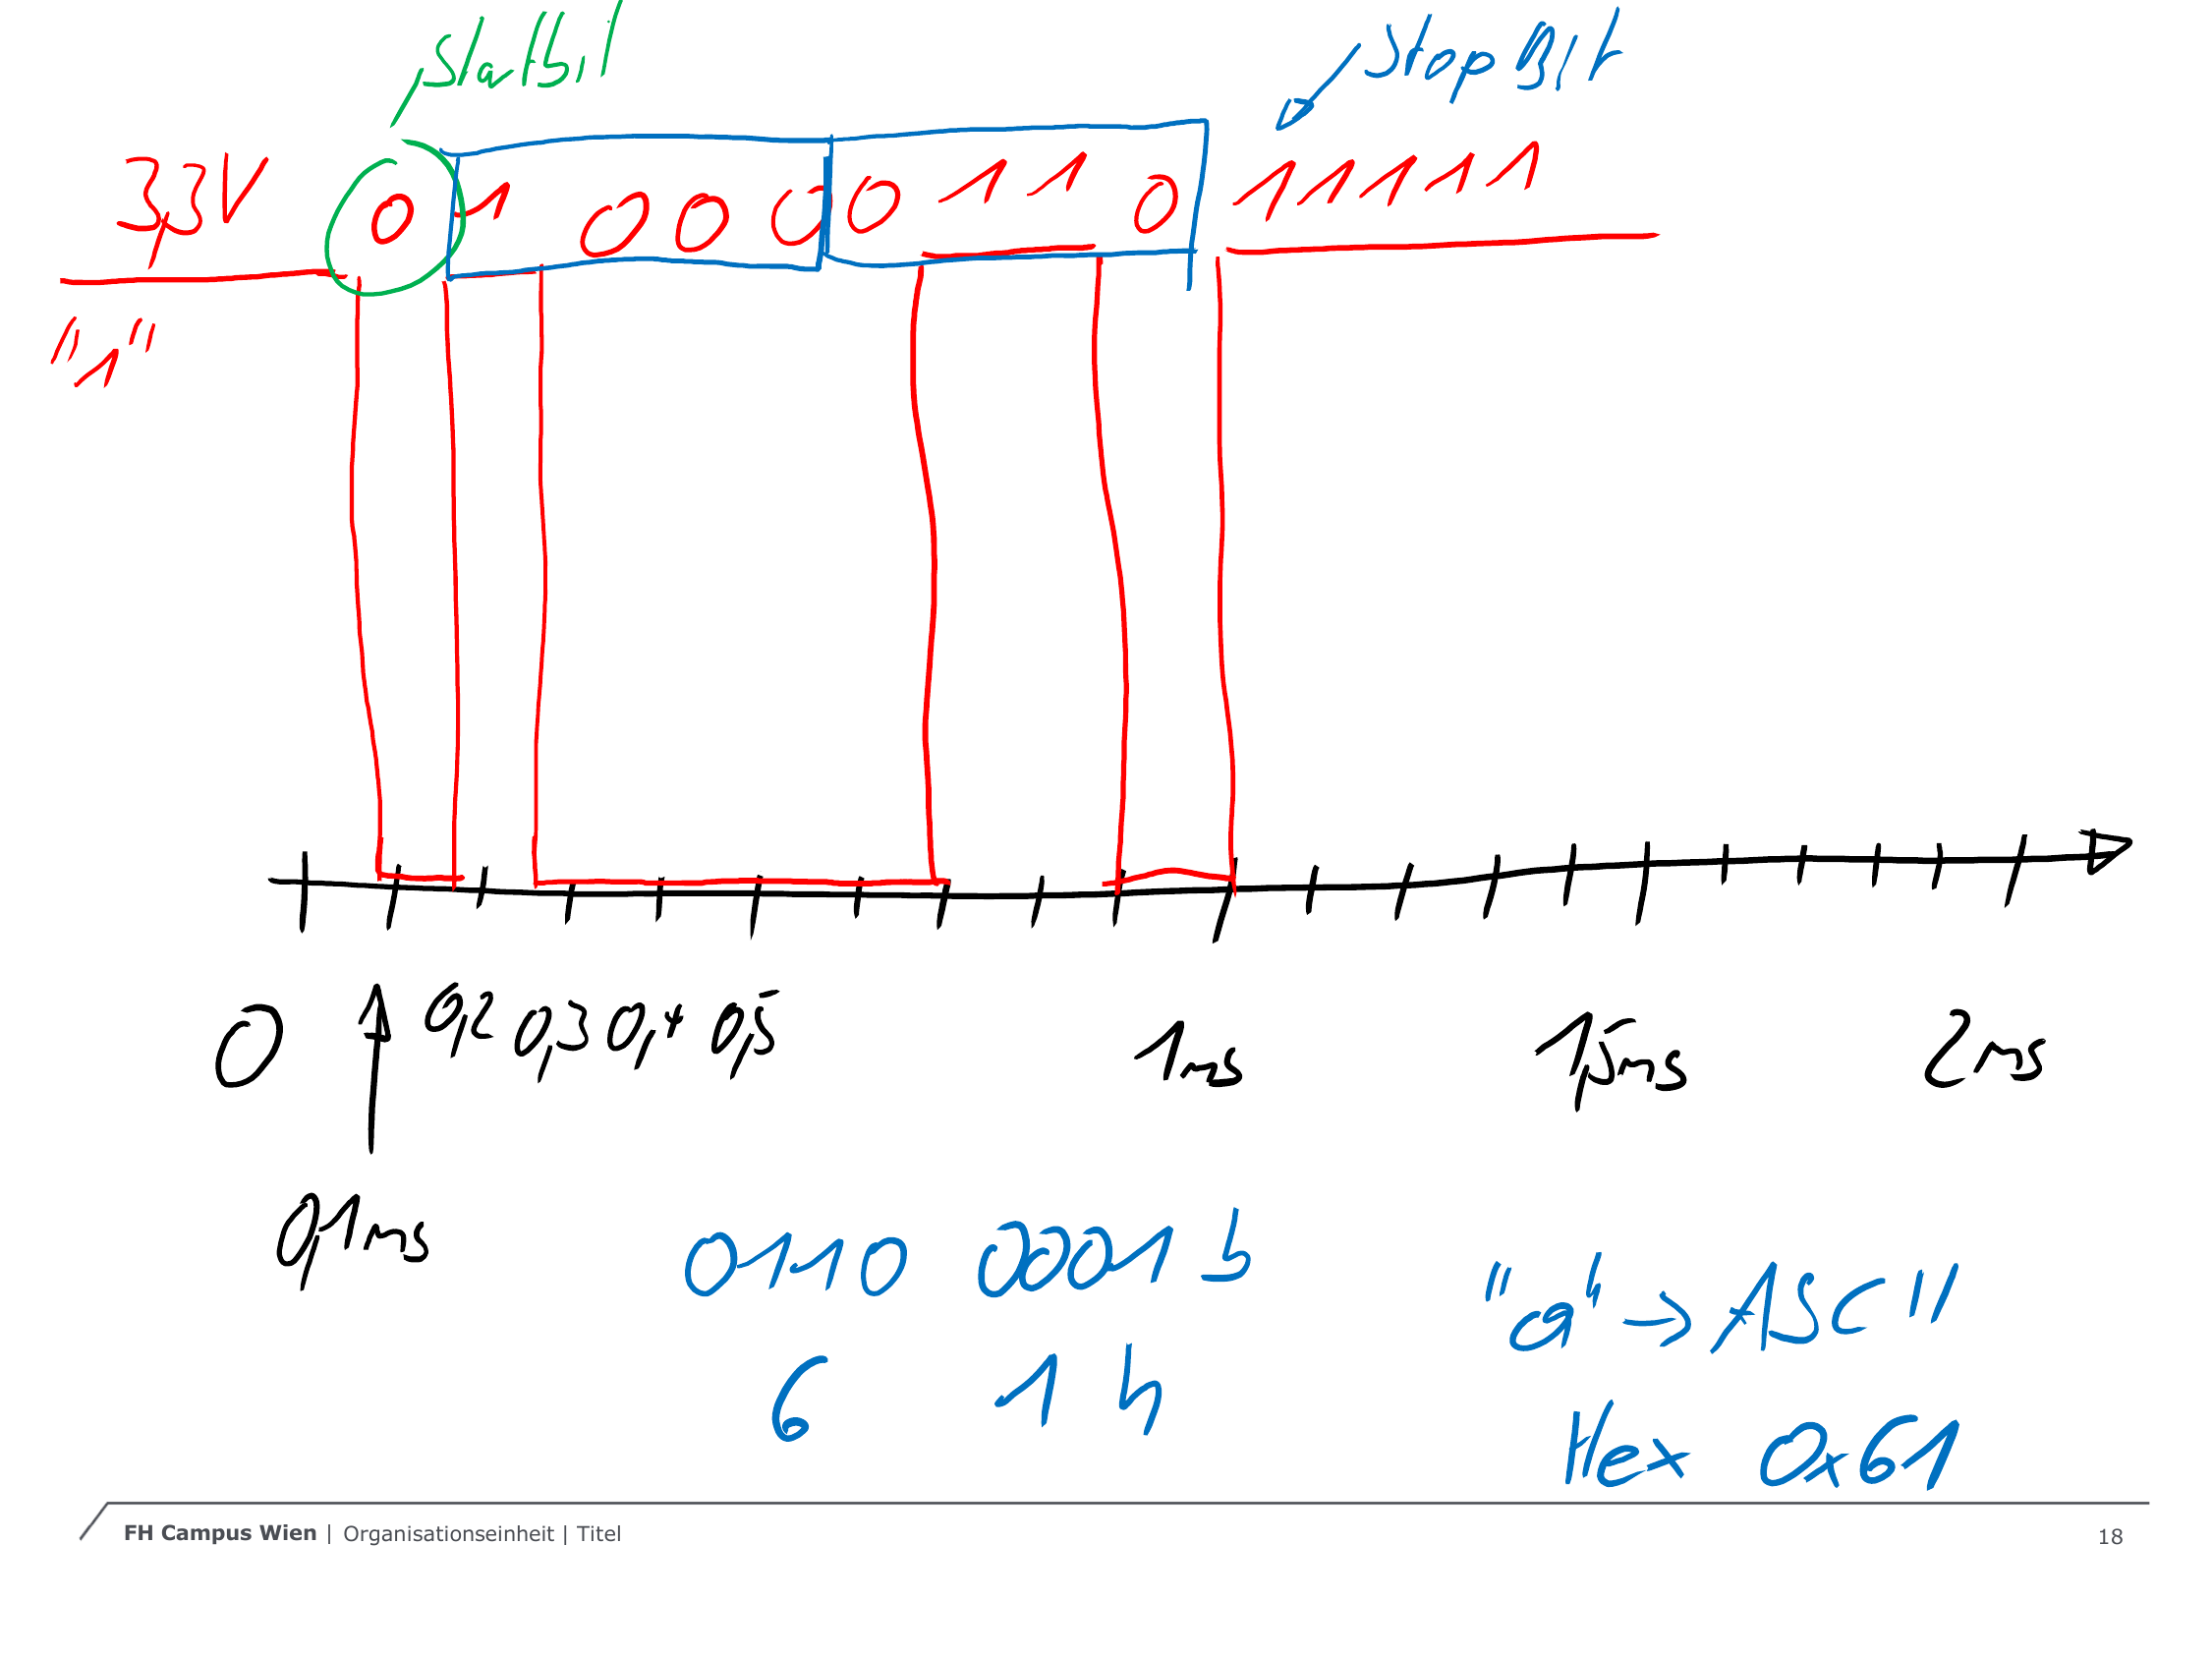 Startbit
Stop Bit
3,3V 0 1 0 0 0 0 0 1 1 0 1 1 1 1 1
"1"
0 0,2 0,3 0,4 0,5 1ms 1,5ms 2ms
0,1ms
0110 0001 b
"a" → ASCII
6 1 h
Hex 0x61
FH Campus Wien | Organisationseinheit | Titel 18